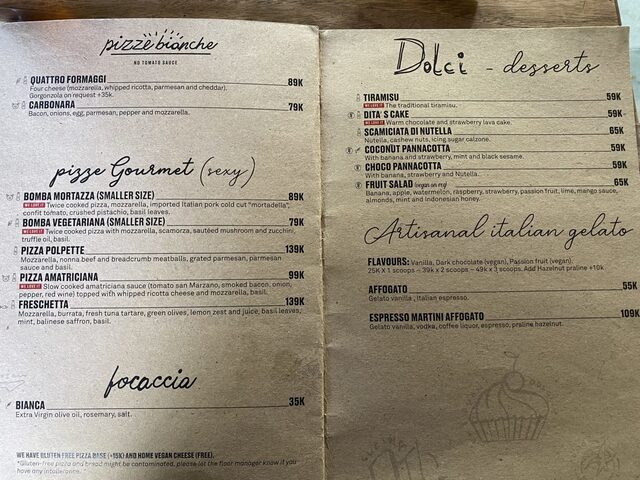 pizze bianche
NO TOMATO SAUCE
QUATTRO FORMAGGI 89K
Four cheese (mozzarella, whipped ricotta, parmesan and cheddar).
Gorgonzola on request +35k.
CARBONARA 79K
Bacon, onions, egg, parmesan, pepper and mozzarella.
pizze Gourmet (sexy)
BOMBA MORTAZZA (SMALLER SIZE) 89K
WE LOVE IT Twice cooked pizza, mozzarella, imported Italian pork cold cut "mortadella",
confit tomato, crushed pistachio, basil leaves.
BOMBA VEGETARIANA (SMALLER SIZE) 79K
WE LOVE IT Twice cooked pizza with mozzarella, scamorza, sautéed mushroom and zucchini,
truffle oil, basil.
PIZZA POLPETTE 139K
Mozzarella, nonna beef and breadcrumb meatballs, grated parmesan, parmesan
sauce and basil.
PIZZA AMATRICIANA 99K
WE LOVE IT Slow cooked amatriciana sauce (tomato san Marzano, smoked bacon, onion,
pepper, red wine) topped with whipped ricotta cheese and mozzarella, basil.
FRESCHETTA 139K
Mozzarella, burrata, fresh tuna tartare, green olives, lemon zest and juice, basil leaves,
mint, balinese saffron, basil.
focaccia
BIANCA 35K
Extra Virgin olive oil, rosemary, salt.
WE HAVE GLUTEN FREE PIZZA BASE (+15K) AND HOME VEGAN CHEESE (FREE).
*Gluten-free pizza and bread might be contaminated, please let the floor manager know if you
have any intollerance.
Dolci - desserts
TIRAMISU 59K
WE LOVE IT The traditional tiramisu.
DITA'S CAKE 59K
WE LOVE IT Warm chocolate and strawberry lava cake.
SCAMICIATA DI NUTELLA 65K
Nutella, cashew nuts, icing sugar calzone.
COCONUT PANNACOTTA 59K
With banana and strawberry, mint and black sesame.
CHOCO PANNACOTTA 59K
With banana, strawberry and Nutella.
FRUIT SALAD (vegan on rq) 65K
Banana, apple, watermelon, raspberry, strawberry, passion fruit, lime, mango sauce,
almonds, mint and indonesian honey.
Artisanal italian gelato
FLAVOURS: Vanilla, Dark chocolate (vegan), Passion fruit (vegan).
25K X 1 scoops - 39k x 2 scoops - 49k x 3 scoops. Add Hazelnut praline +10k
AFFOGATO 55K
Gelato vanilla, Italian espresso.
ESPRESSO MARTINI AFFOGATO 109K
Gelato vanilla, vodka, coffee liquor, espresso, praline hazelnut.